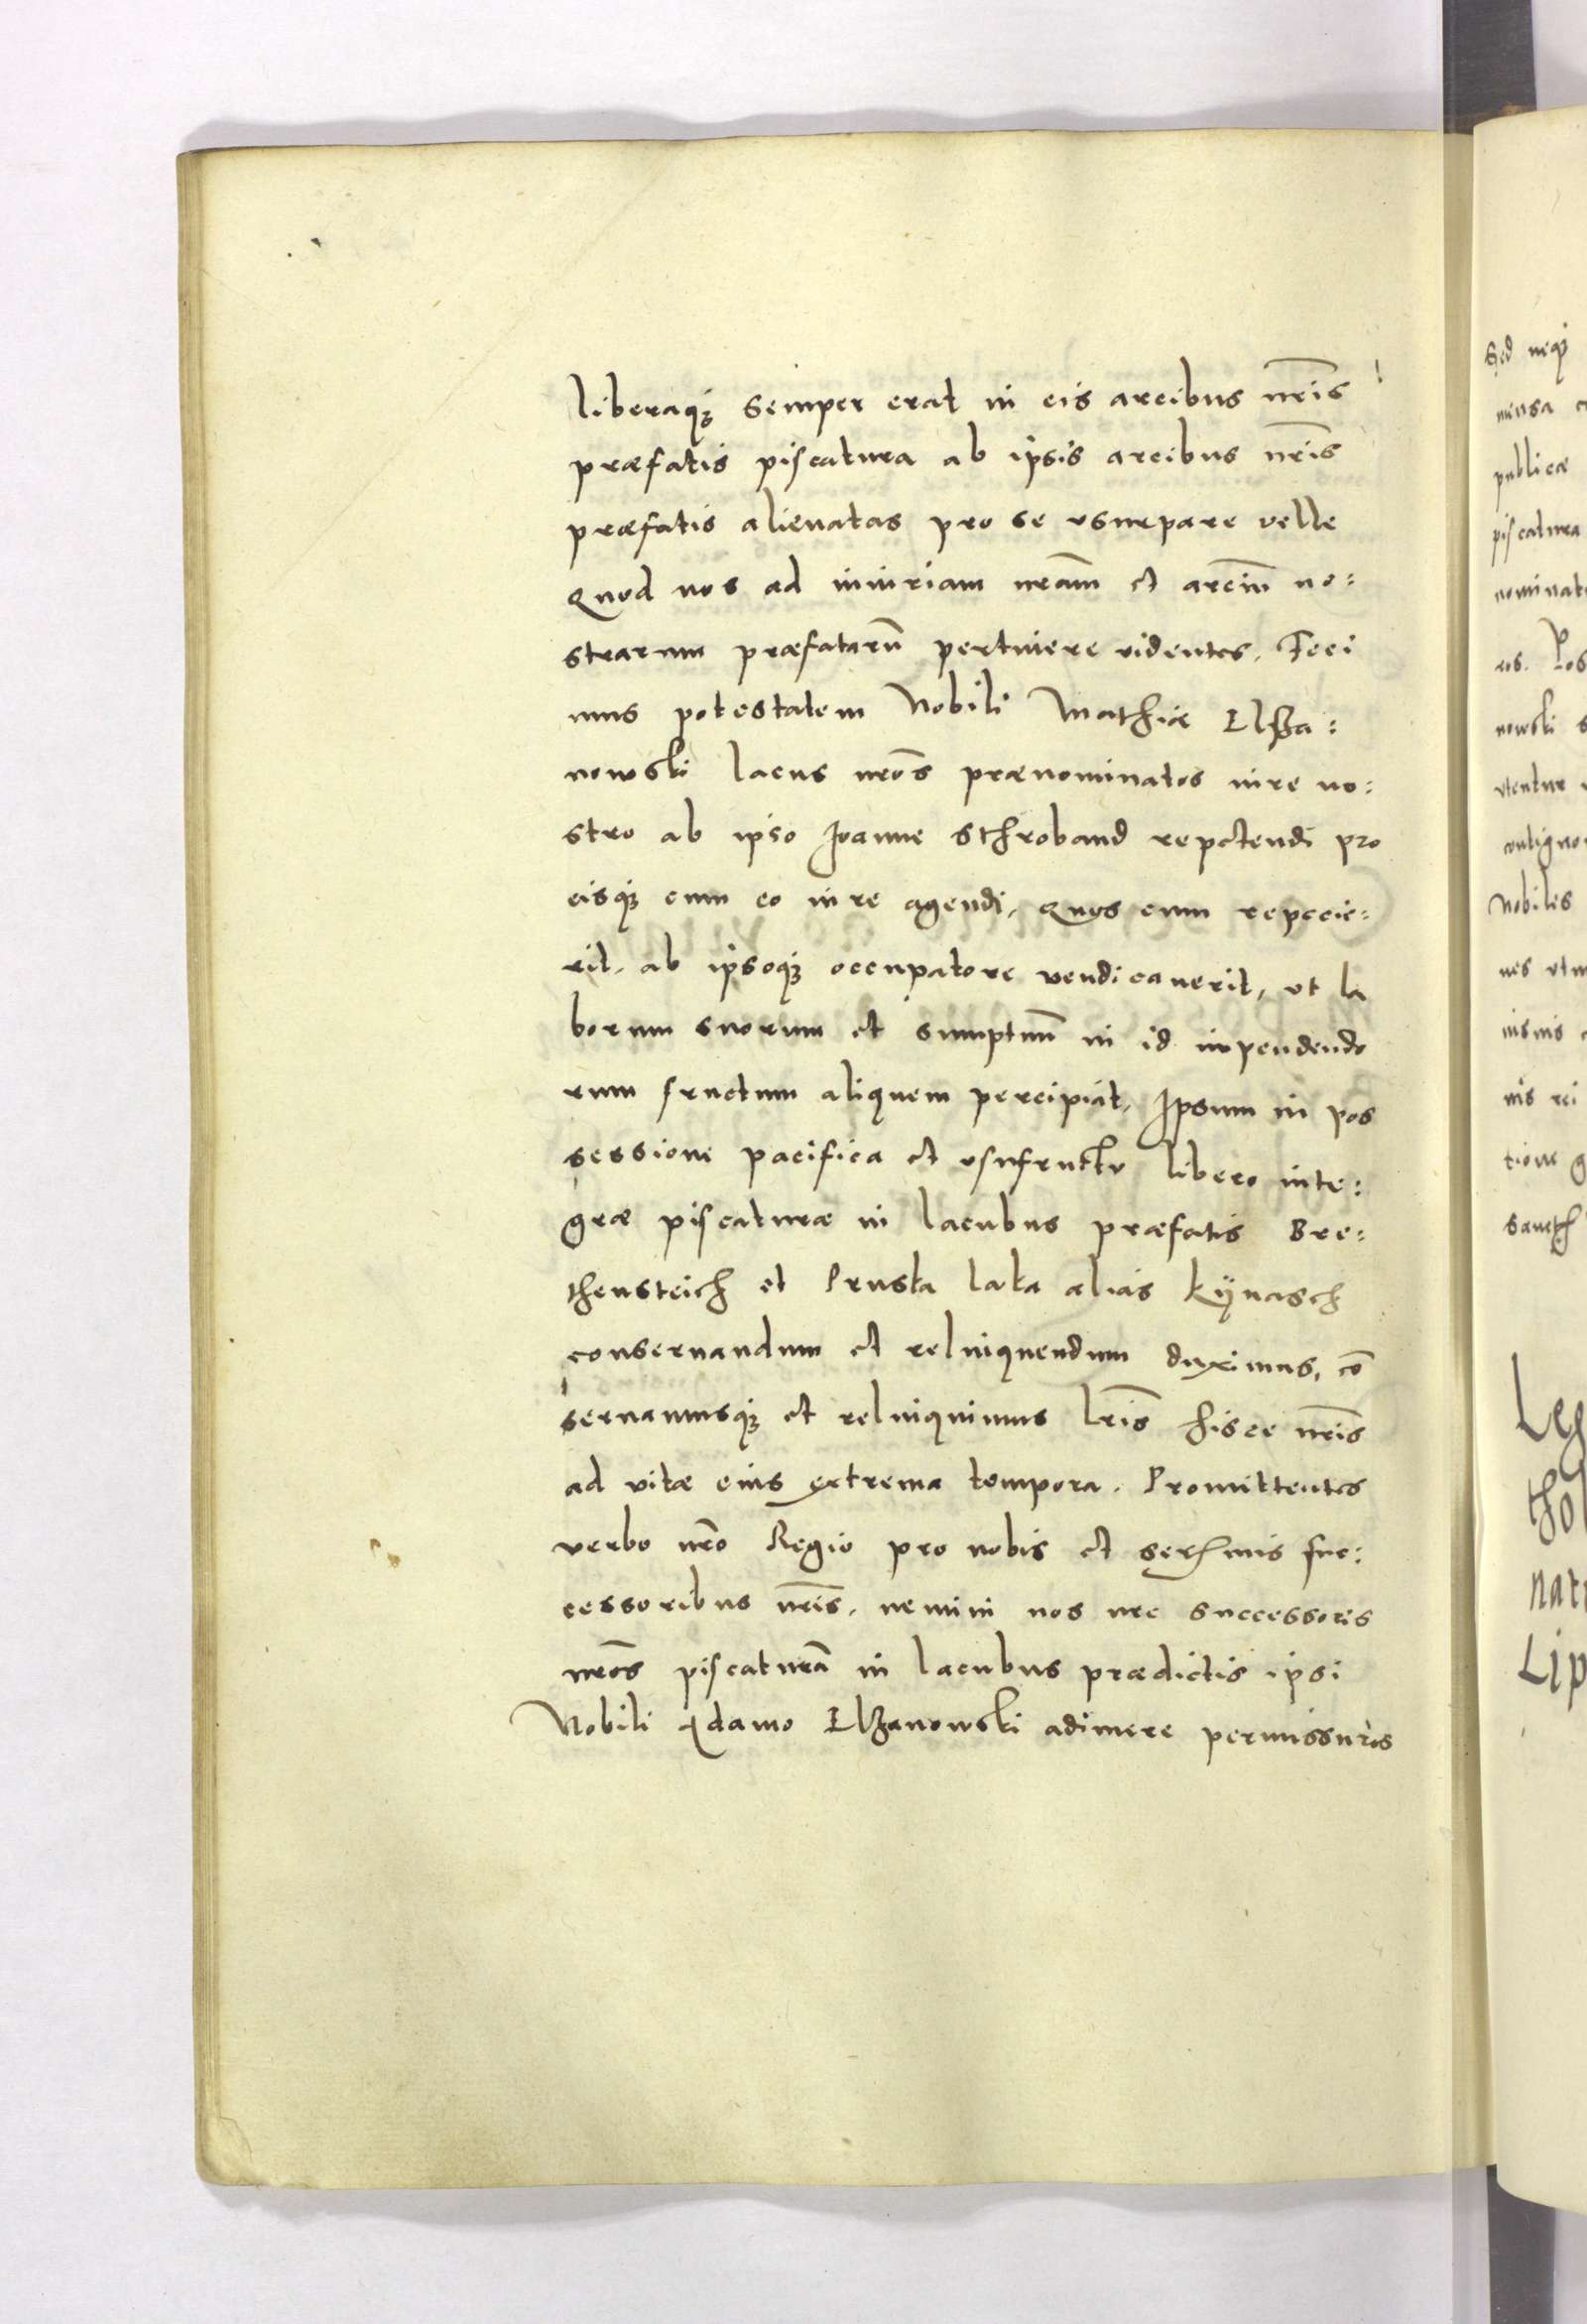 liberaq₃ semper erat in eis arcibus nr̃is
præfatis piscatura ab ipsis arcibus nr̃is
præfatis alienatas pro se vsurpare velle
Quod nos ad iniuriam nr̃am et arciũ no:
strarum præfatarũ pertinere videntes, Feci
mus potestatem Nobili Mathiæ Elßa:
nowski lacus nr̃os prænominatos iure no:
stro ab ipso Joanne Sthroband repetendi pro
eisq₃ cum eo iure agendi, Quos cum repecie:
rit, ab ipsoq₃ occupatore vendicauerit, vt la
borum suorum et sumptuũ in id inpendendo
rum fructum aliquem percipiat, Ipsum in pos
sessione pacifica et vsufructu libero inte:
græ piscaturæ in lacubus præfatis Bre:
thensteich et Pruska laka alias Kÿnasch
conseruandum et relinquendum duximus, cõ
seruamusq₃ et relinquimus lr̃is hisce nr̃is
ad vitæ eius extrema tempora. Promittentes
verbo nr̃o Regio pro nobis et ser^mis suc:
cessoribus nr̃is, nemini nos nec successores
nr̃os piscaturã in lacubus prædictis ipsi
Nobili Adamo Elßanowski adimere permissuros
Sed neq₃
mensa
publicæ
piscatura
ros. Pos
nowski s
vtentur
Nobiles
nes
tione g
Leg
thol
nat
Lip